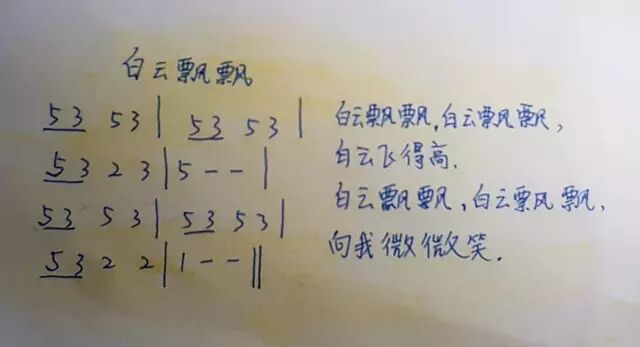 白云飘飘
53 53 | 53 53 |
53 2 3 | 5 - - |
53 53 | 53 53 |
53 2 2 | 1 - - ‖
白云飘飘,白云飘飘,
白云飞得高.
白云飘飘,白云飘飘,
向我微微笑.